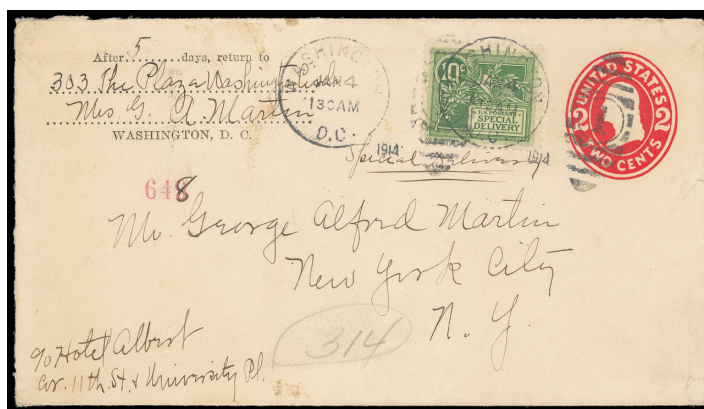 After 5 days, return to
303 The Plaza Washington
Mrs. G. A. Martin
WASHINGTON, D. C.
WASHINGTON
JAN 4
130AM
D.C.
1914
10c
U.S. POSTAGE
SPECIAL
DELIVERY
1914
UNITED STATES
2 2
TWO CENTS
Special Delivery
648
Mr. George Alfred Martin
New York City
N. Y.
314
c/o Hotel Albert
Cor. 11th. St. & University Pl.